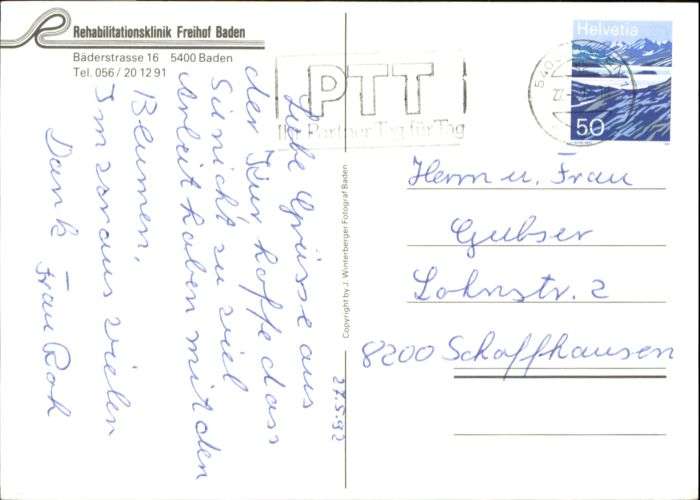 Rehabilitationsklinik Freihof Baden
Bäderstrasse 16 5400 Baden
Tel. 056/20 12 91
PTT
Ihr Partner Tag für Tag
Helvetia
50
27.5.92
Liebe Grüsse aus
der Kur hoffe dass
Sie nicht zu viel
Arbeit haben mit den
Blumen.
Im voraus vielen
Dank Frau Roh
Copyright by J. Winterberger Fotograf Baden
Herrn u. Frau
Gubser
Lohnstr. 2
8200 Schaffhausen